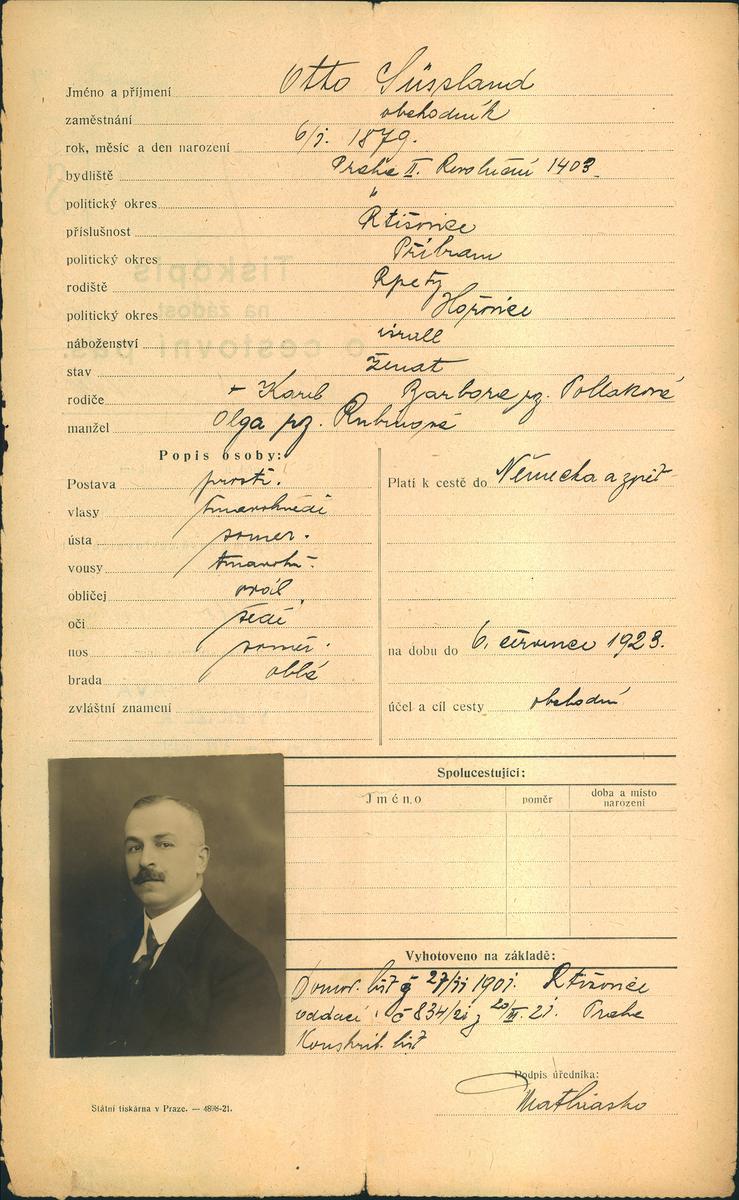 Jméno a příjmení Otto Süssland
zaměstnání obchodník
rok, měsíc a den narození 6/1. 1879.
bydliště Praha II. Revoluční 1403
politický okres "
příslušnost Rtišovice
politický okres Příbram
rodiště Rpety
politický okres Hořovice
náboženství israel
stav ženat
rodiče + Karel Barbora roz. Pollaková
manžel Olga roz. Rubínová
Popis osoby:
Postava prostř.
vlasy tmavohnědé
ústa souměr.
vousy tmavohn.
obličej ovál
oči šedé
nos souměr.
brada oblá
zvláštní znamení
Platí k cestě do Německa a zpět
na dobu do 6. července 1923.
účel a cíl cesty obchodní
Spolucestující:
Jméno poměr doba a místo narození
Vyhotoveno na základě:
Domov. list 27/11 1901. Rtišovice
oddací č 834/21 z 20/III. 21. Praha
Konskrib. list
Podpis úředníka:
Státní tiskárna v Praze. — 4898-21.
Tiskopis
na žádost
o cestovní pas.